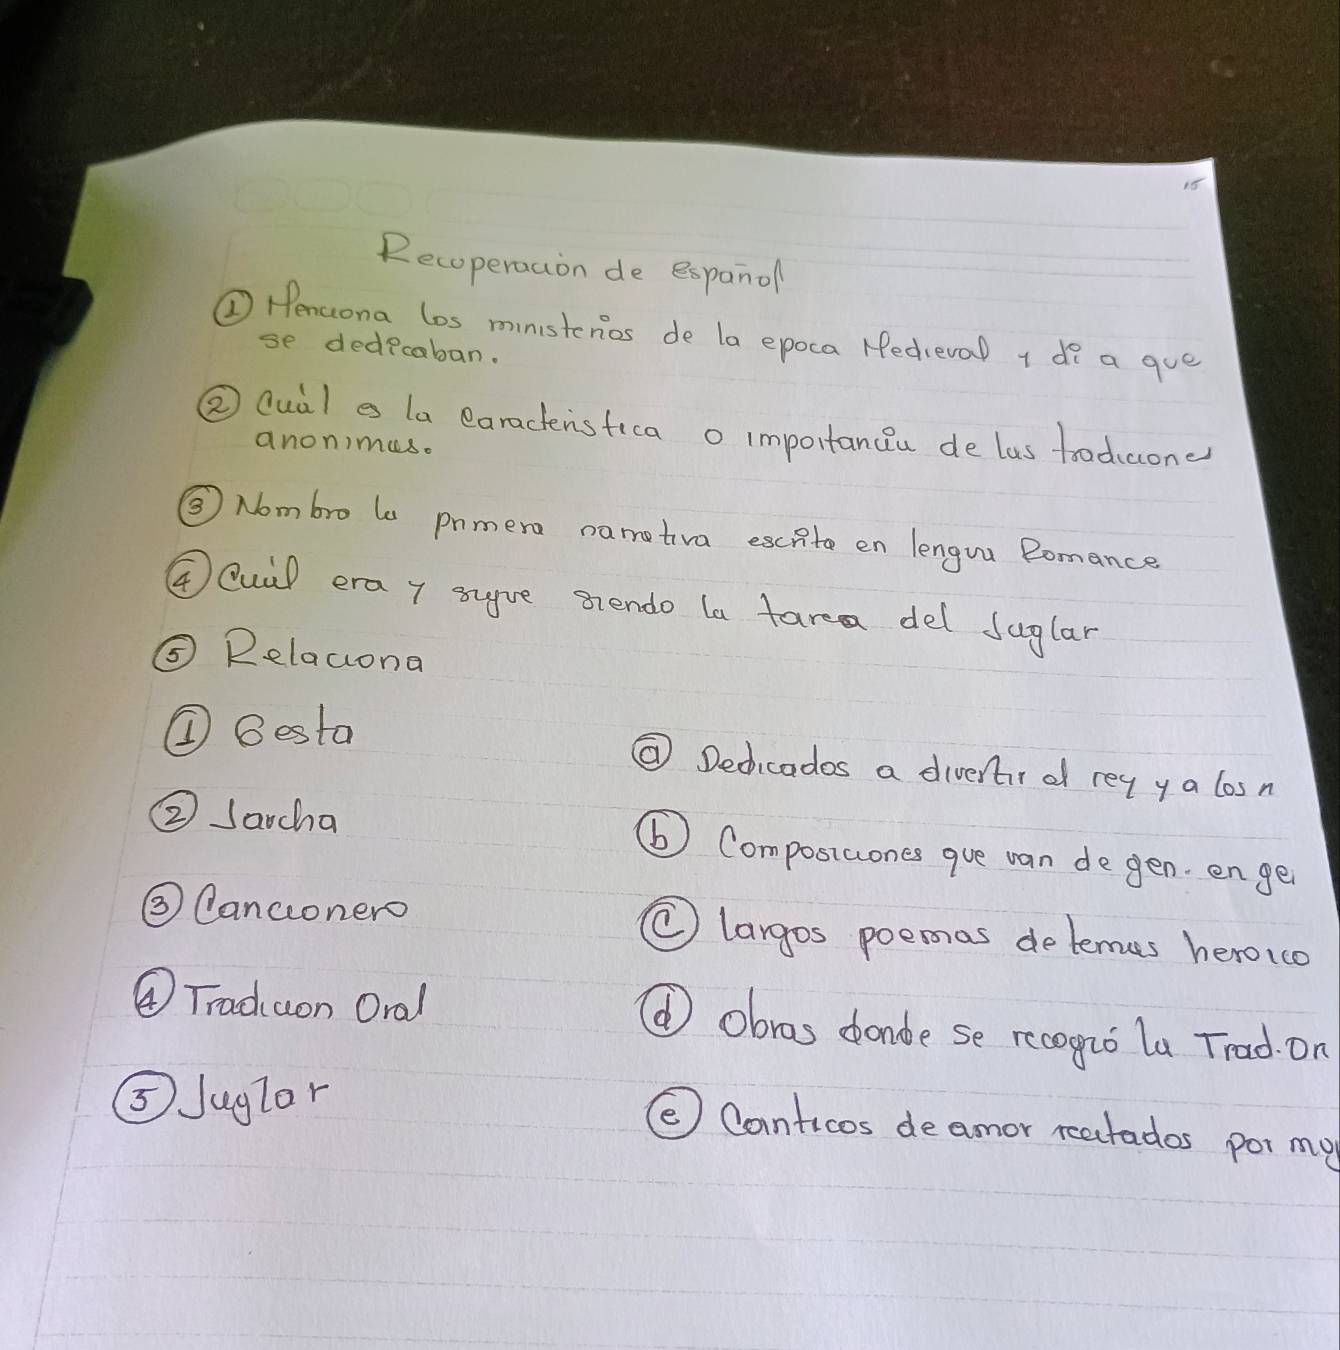 15
Recuperación de español
① Menciona los ministerios de la epoca Medieval y di a que
se dedicaban.
② Cuál es la caracteristica o importancia de las tradiciones
anonimas.
③ Nombro la primera narrativa escrita en lengua Romance
④ Cuál era y sigue siendo la tarea del Juglar
⑤ Relaciona
① Gesta
ⓐ Dedicados a divertir al rey y a los n
② Jarcha
ⓑ Composiciones que van de gen. en ge
③ Cancionero
ⓒ largos poemas de temas heroico
④ Tradicion Oral
ⓓ Obras donde se recogió la Trad. Or
⑤ Juglar
ⓔ Canticos de amor recitados por